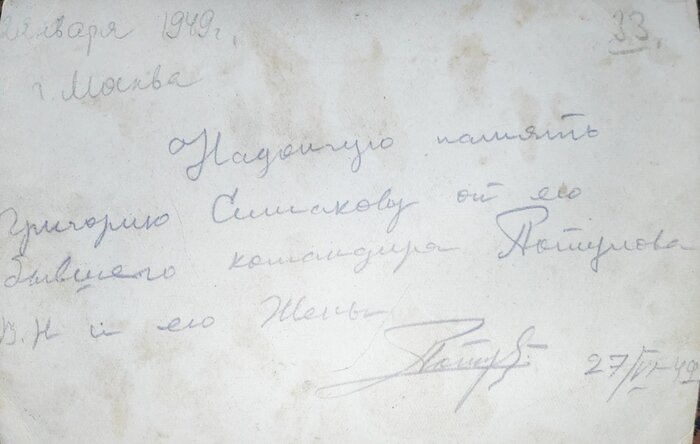 2 января 1949г.
33.
г. Москва
На долгую память
Григорию Симакову от его
бывшего командира Потулова
В.Н и его Жены
27/VI-49